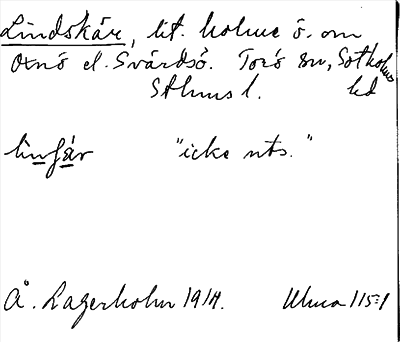 Lindskär, lit. holme ö. om
Oxnö el. Svärdsö. Torö sn, Sotholms
Sthms l. hd
linʃär "icke uts."
Å. Lagerholm 1914. Uhma 115:1